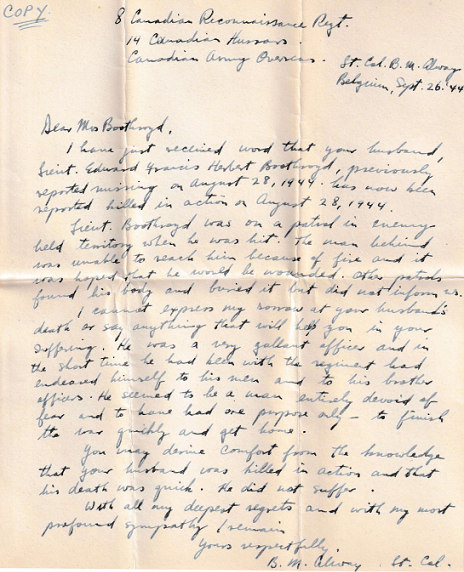 COPY.
8 Canadian Reconnaissance Regt.
14 Canadian Hussars.
Canadian Army Overseas.
Lt. Col. B. M. Alway
Belgium, Sept. 26. 44
Dear Mrs Boothroyd,
I have just received word that your husband,
Lieut. Edward Francis Herbert Boothroyd, previously
reported missing on August 28, 1944. has now been
reported killed in action on August 28, 1944.
Lieut. Boothroyd was on a patrol in enemy
held territory when he was hit. The man behind
was unable to reach him because of fire and it
was hoped that he would be wounded. Other patrols
found his body and buried it but did not inform us.
I cannot express my sorrow at your husband's
death or say anything that will help you in your
suffering. He was a very gallant officer and in
the short time he had been with the regiment had
endeared himself to his men and to his brother
officers. He seemed to be a man entirely devoid of
fear and to have had one purpose only - to finish
the war quickly and get home.
You may derive comfort from the knowledge
that your husband was killed in action and that
his death was quick. He did not suffer.
With all my deepest regrets and with my most
profound sympathy I remain
Yours respectfully,
B. M. Alway. Lt. Col.